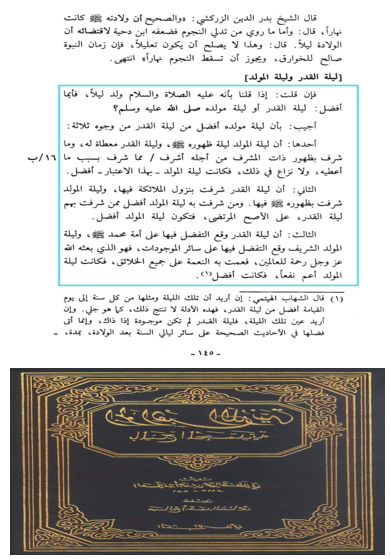 قال الشيخ بدر الدين الزركشي: «والصحيح أن ولادته ﷺ كانت
نهاراً، قال: وأما ما روي من تدلي النجوم فضعفه ابن دحية لاقتضائه أن
الولادة ليلاً. قال: وهذا لا يصلح أن يكون تعليلاً، فإن زمان النبوة
صالح للخوارق، ويجوز أن تسقط النجوم نهاراً» انتهى.
[ليلة القدر وليلة المولد]
فإن قلت: إذا قلنا بأنه عليه الصلاة والسلام ولد ليلاً، فأيما
أفضل: ليلة القدر أو ليلة مولده صلى الله عليه وسلم؟
أجيب: بأن ليلة مولده أفضل من ليلة القدر من وجوه ثلاثة:
أحدها: أن ليلة المولد ليلة ظهوره ﷺ، وليلة القدر معطاة له، وما
شرف بظهور ذات المشرف من أجله أشرف / مما شرف بسبب ما ١٦/ب
أعطيه، ولا نزاع في ذلك، فكانت ليلة المولد ـ بهذا الاعتبار ـ أفضل.
الثاني: أن ليلة القدر شرفت بنزول الملائكة فيها، وليلة المولد
شرفت بظهوره ﷺ فيها. ومن شرفت به ليلة المولد أفضل ممن شرفت بهم
ليلة القدر، على الأصح المرتضى، فتكون ليلة المولد أفضل.
الثالث: أن ليلة القدر وقع التفضل فيها على أمة محمد ﷺ، وليلة
المولد الشريف وقع التفضل فيها على سائر الموجودات، فهو الذي بعثه الله
عز وجل رحمة للعالمين، فعمت به النعمة على جميع الخلائق، فكانت ليلة
المولد أعم نفعاً، فكانت أفضل(١).
(١) قال الشهاب الهيتمي: إن أريد أن تلك الليلة ومثلها من كل سنة إلى يوم
القيامة أفضل من ليلة القدر، فهذه الأدلة لا تنتج ذلك، كما هو جلي. وإن
أريد عين تلك الليلة، فليلة القدر لم تكن موجودة إذا ذاك، وإنما أتى
فضلها في الأحاديث الصحيحة على سائر ليالي السنة بعد الولادة، بمدة، ـ
- ١٤٥ -